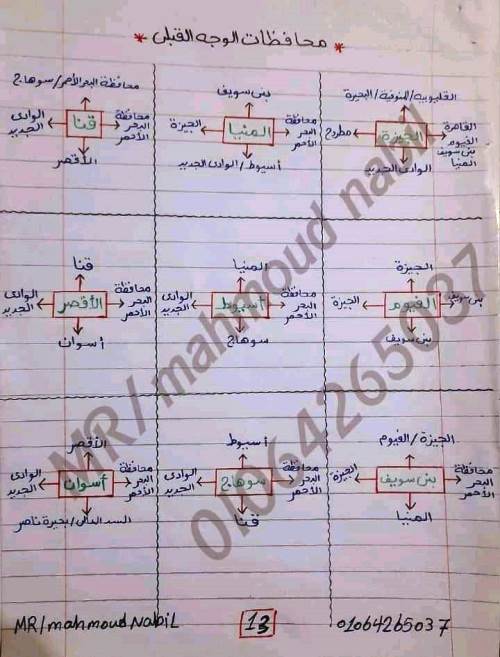 * محافظات الوجه القبلى *
القليوبية/المنوفية/البحيرة
القاهرة
الفيوم
بنى سويف
المنيا
الجيزة
مطروح
الوادى الجديد
بنى سويف
محافظة
البحر
الأحمر
المنيا
الجيزة
أسيوط/الوادى الجديد
محافظة البحر الأحمر/سوهاج
محافظة
البحر
الأحمر
قنا
الوادى
الجديد
الأقصر
الجيزة
بنى سويف
الفيوم
الجيزة
بنى سويف
المنيا
محافظة
البحر
الأحمر
أسيوط
الوادى
الجديد
سوهاج
قنا
محافظة
البحر
الأحمر
الأقصر
الوادى
الجديد
أسوان
الجيزة/الفيوم
محافظة
البحر
الأحمر
بنى سويف
الجيزة
المنيا
أسيوط
محافظة
البحر
الأحمر
سوهاج
الوادى
الجديد
قنا
الأقصر
محافظة
البحر
الأحمر
أسوان
الوادى
الجديد
السد العالى/بحيرة ناصر
MR/mahmoud nabil
01064265037
MR/mahmoud NabiL
13
01064265037